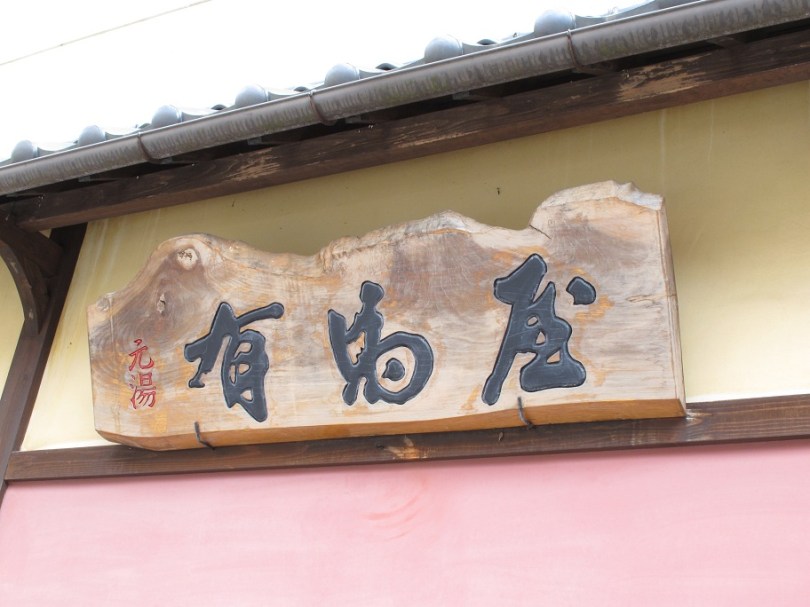 元湯
有馬屋